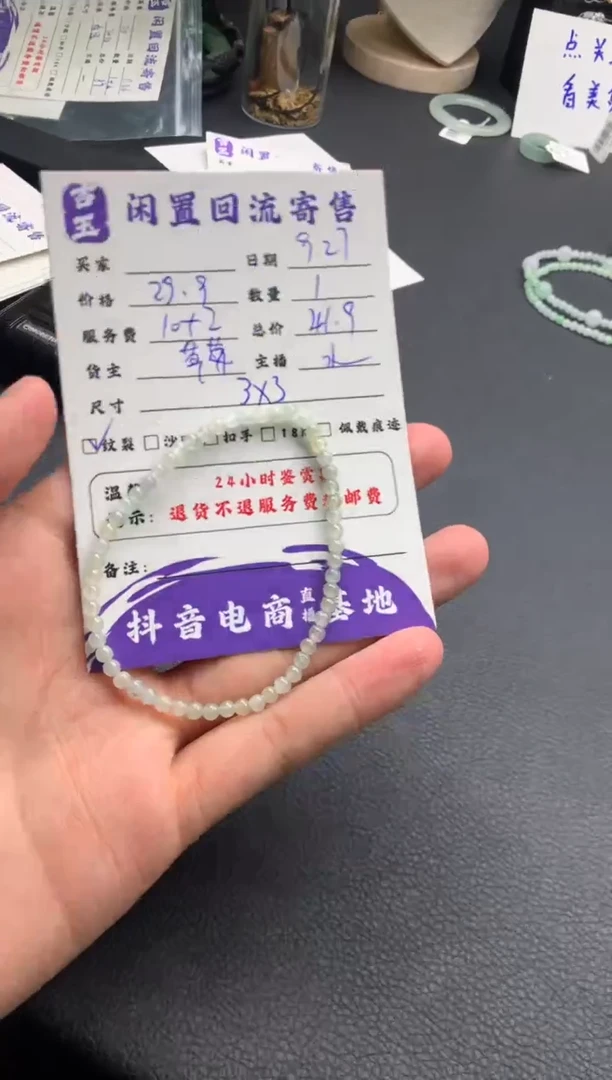 闲置回流寄售
闲置
点关
看美
吉玉 闲置回流寄售
买家 日期 9 27
价格 29.9 数量 1
服务费 10+2 总价 41.9
货主 主播
尺寸 3X3
纹裂 扣手 佩戴痕迹
24小时鉴赏
示: 退货不退服务费 邮费
备注:
抖音电商直播基地